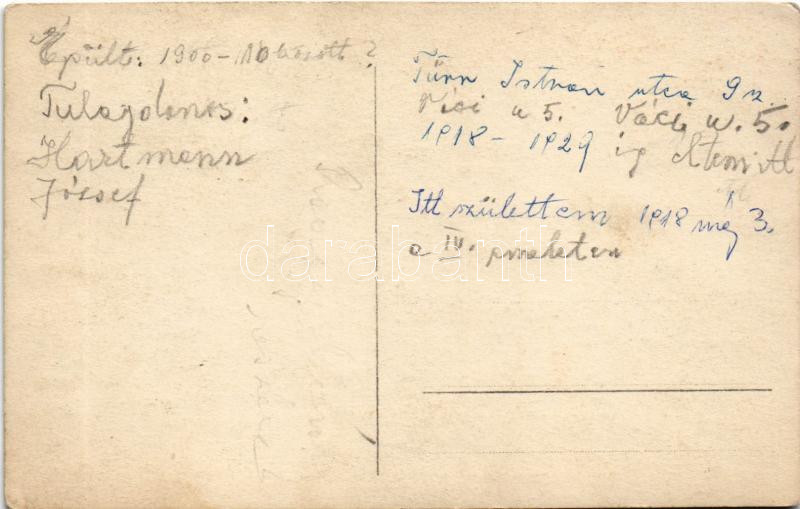 Épült: 1900-10 között?
Tulajdonos:
Hartmann
József
Türr István utca 9 sz.
Váci u 5. Váci u. 5.
1918 - 1929 ig éltem itt
Itt születtem 1918 máj 3.
a IV. emeleten
darabanth